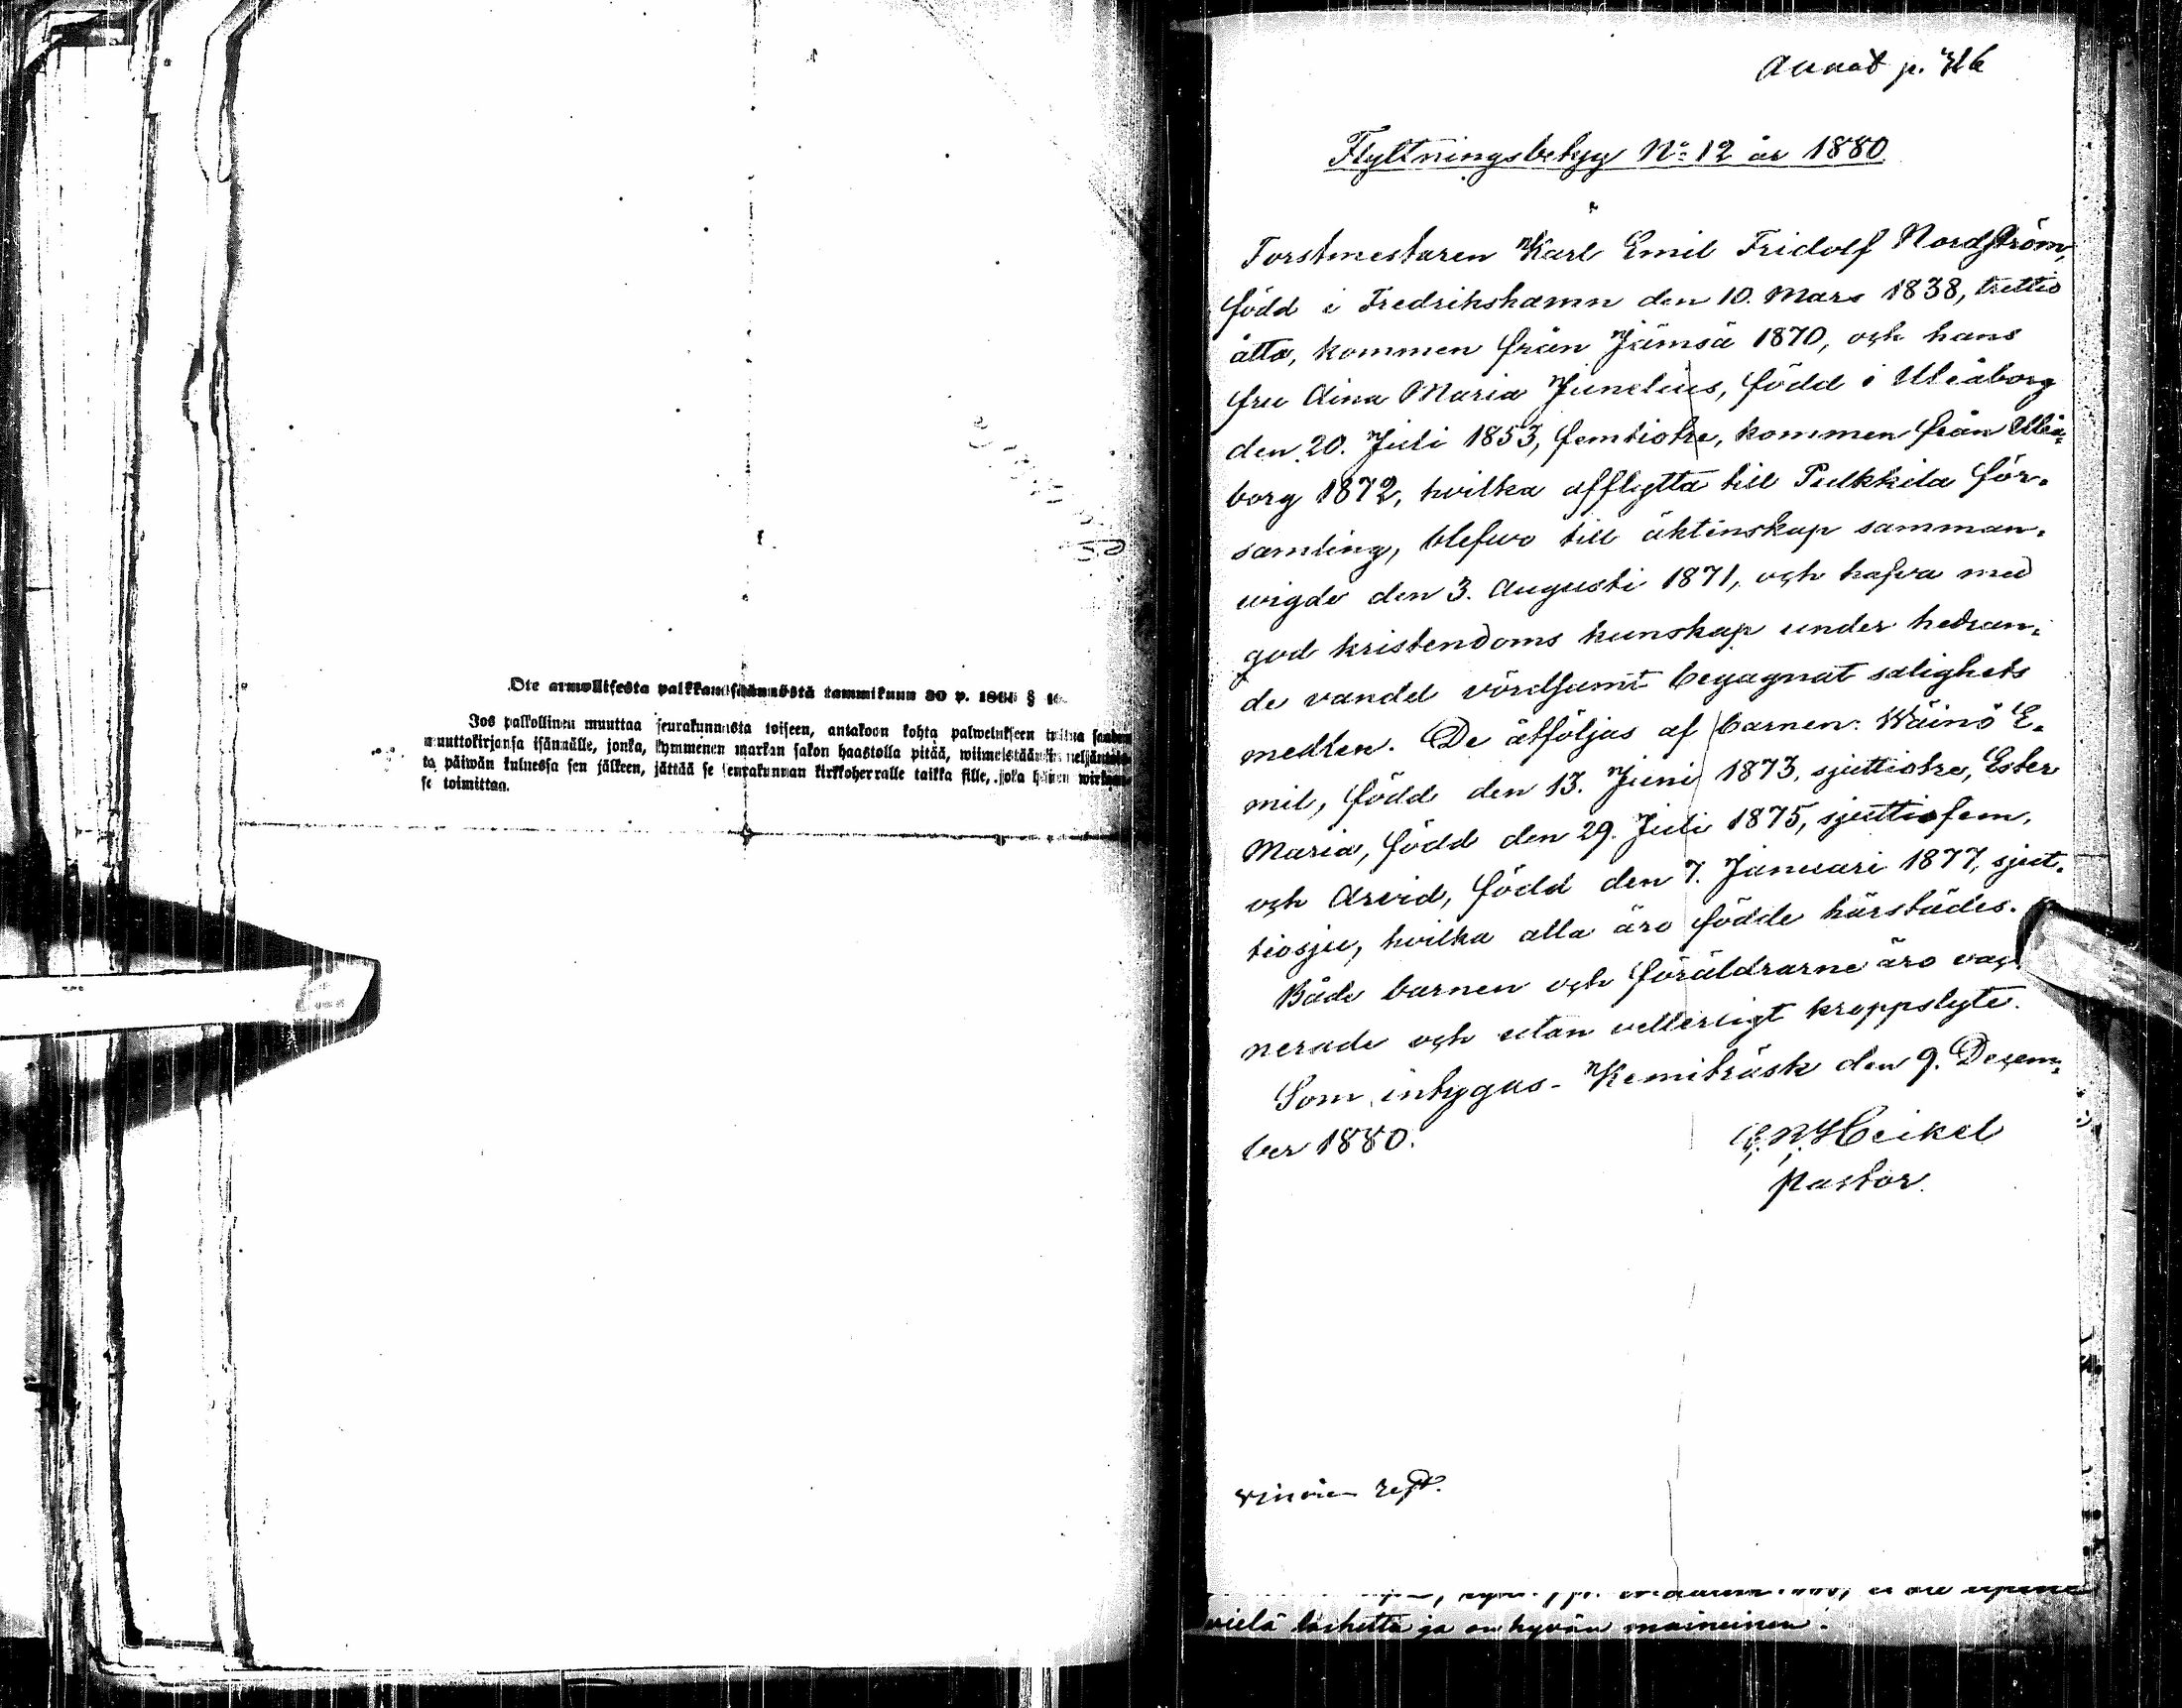 Ote armollisesta palkkaussäännöstä tammikuun 30 p. 1865 §
Jos palkollinen muuttaa seurakunnasta toiseen, antakoon kohta palwelukseen tultua saadun
muuttokirjansa isännälle, jonka, kymmenen markan sakon haastolla pitää, wiimeistäänkin neljäntois-
ta päiwän kuluessa sen jälkeen, jättää se seurakunnan kirkkoherralle taikka sille, joka hänen wirkaan-
se toimittaa.
Flyttningsbetyg No 12 år 1880.
Forstmestaren Karl Emil Fridolf Nordström,
född i Fredrikshamn den 10. Mars 1838, trettio
åtta, kommen från Jämsä 1870, och hans
fru Aina Maria Junelius, född i Uleåborg
den 20. Juli 1853, femtiotre, kommen från Uleå-
borg 1872, hvilka afflytta till Pulkkila för-
samling, blefvo till äktenskap samman-
wigde den 3. Augusti 1871, och hafva med
god kristendoms kunskap under hedran-
de vandel vördsamt begagnat salighets
medlen. De åtföljas af barnen: Wäinö E-
mil, född den 13. Juni 1873, sjuttiotre, Ester
Maria, född den 29. Juli 1875, sjuttiofem,
och Arvid, född den 7. Januari 1877, sjut-
tiosju, hvilka alla äro födde härstädes.
Både barnen och föräldrarne äro vac
nerade och utan vetterligt kroppslyte.
Som intygas - Kemiträsk den 9. Decem-
ber 1880.
Heikel
Pastor.
vielä ja on hyvän maineinen.